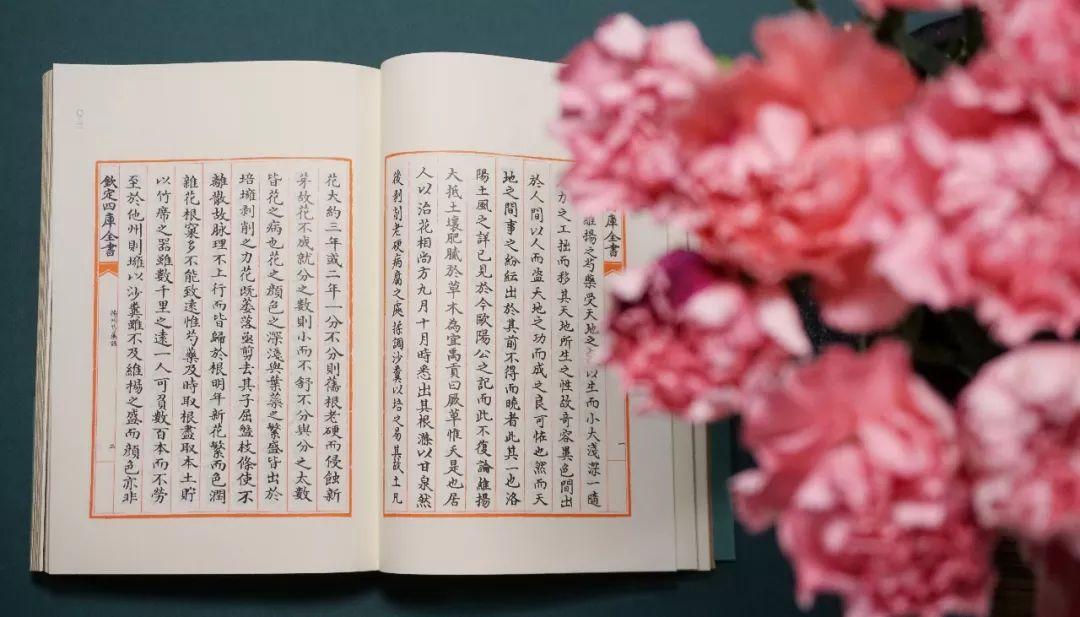 庫全書
一
維揚之芍藥受天地之以生而小大淺深一隨
力之工拙而移其天地所生之性故奇容異色間出
於人間以人而盜天地之功而成之良可怪也然而天
地之間事之紛紜出於其前不得而曉者此其一也洛
陽土風之詳已見於今歐陽公之記而此不復論維揚
大抵土壤肥膩於草木為宜禹貢曰厥草惟夭是也居
人以治花相尚方九月十月時悉出其根滌以甘泉然
後剥削老硬病腐之處揉調沙糞以培之易其故土凡
花大約三年或二年一分不分則舊根老硬而侵蝕新
芽故花不成就分之數則小而不舒不分與分之太數
皆花之病也花之顔色之深淺與葉蘂之繁盛皆出於
培壅剥削之力花既萎落亟剪去其子屈盤枝條使不
離散故脉理不上行而皆歸於根明年新花繁而色潤
雜花根窠多不能致逺惟芍藥及時取根盡取本土貯
以竹席之器雖數千里之逺一人可負數百本而不勞
至於他州則壅以沙糞雖不及維揚之盛而顔色亦非
欽定四庫全書
揚州芍藥譜
二